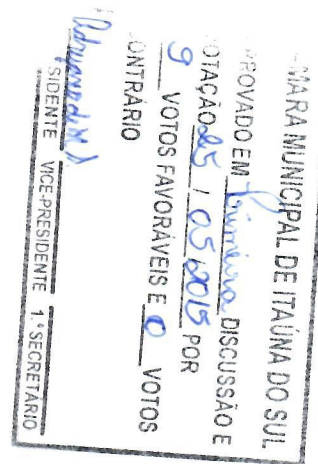 MARA MUNICIPAL DE ITAÚNA DO SUL
ROVADO EM primeira DISCUSSÃO E
OTAÇÃO 25 / 05 2015 POR
9 VOTOS FAVORÁVEIS E 0 VOTOS
ONTRÁRIO
SIDENTE VICE-PRESIDENTE 1.º SECRETÁRIO